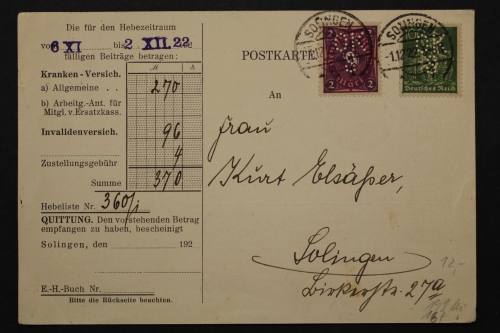 Die für den Hebezeitraum
vom 6 XI bis 2 XII. 22
fälligen Beiträge betragen:
M
Kranken-Versich.
a) Allgemeine . . 270
b) Arbeitg.-Ant. für
Mitgl. v. Ersatzkass.
Invalidenversich. 96
Zustellungsgebühr 4
Summe 370
Hebeliste Nr. 360/i
QUITTUNG. Den vorstehenden Betrag
empfangen zu haben, bescheinigt
Solingen, den 192
E.-H.-Buch Nr.
Bitte die Rückseite beachten.
POSTKARTE
SOLINGEN
2 2
SOLINGEN
-1.12.
Deutsches Reich
An
Frau
Kurt Elsäßer,
Solingen
Birkerstr. 27a
12,-